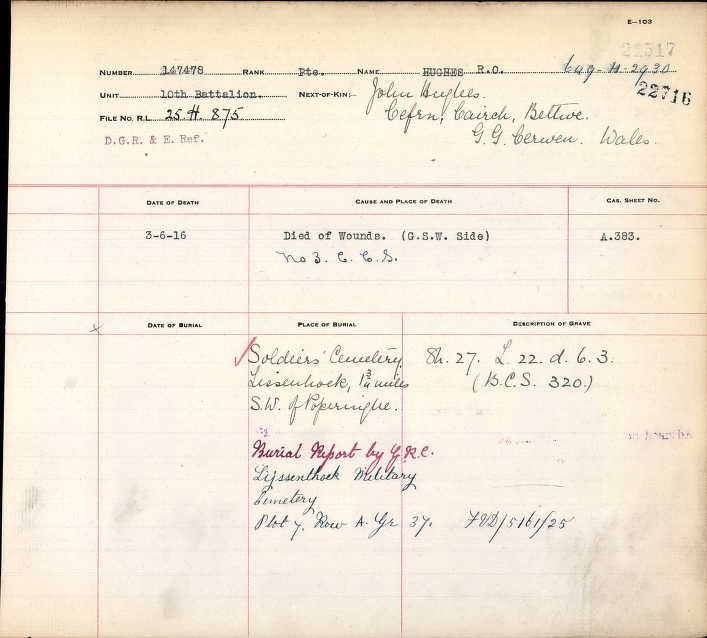 E-103
22317
NUMBER 147478 RANK Pte. NAME HUGHES R.O.
22716
UNIT 10th Battalion. NEXT-OF-KIN:- John Hughes.
FILE NO. R.L. 25.H. 875 Cefrn, Cairch, Bettwc.
D.G.R. & E. Ref. G.G. Cerwen. Wales.
DATE OF DEATH CAUSE AND PLACE OF DEATH CAS. SHEET NO.
3-6-16 Died of Wounds. (G.S.W. Side) A.383.
No 3. C.C.S.
DATE OF BURIAL PLACE OF BURIAL DESCRIPTION OF GRAVE
Soldiers' Cemetery Sh. 27. L. 22. d. 6. 3.
Lissenhock, 1 3/4 miles (B.C.S. 320.)
S.W. of Poperinghe.
Burial Report by G.R.C.
Lijssenthock Military
Cemetery
Plot 7. Row A. Gr 37. /5161/25